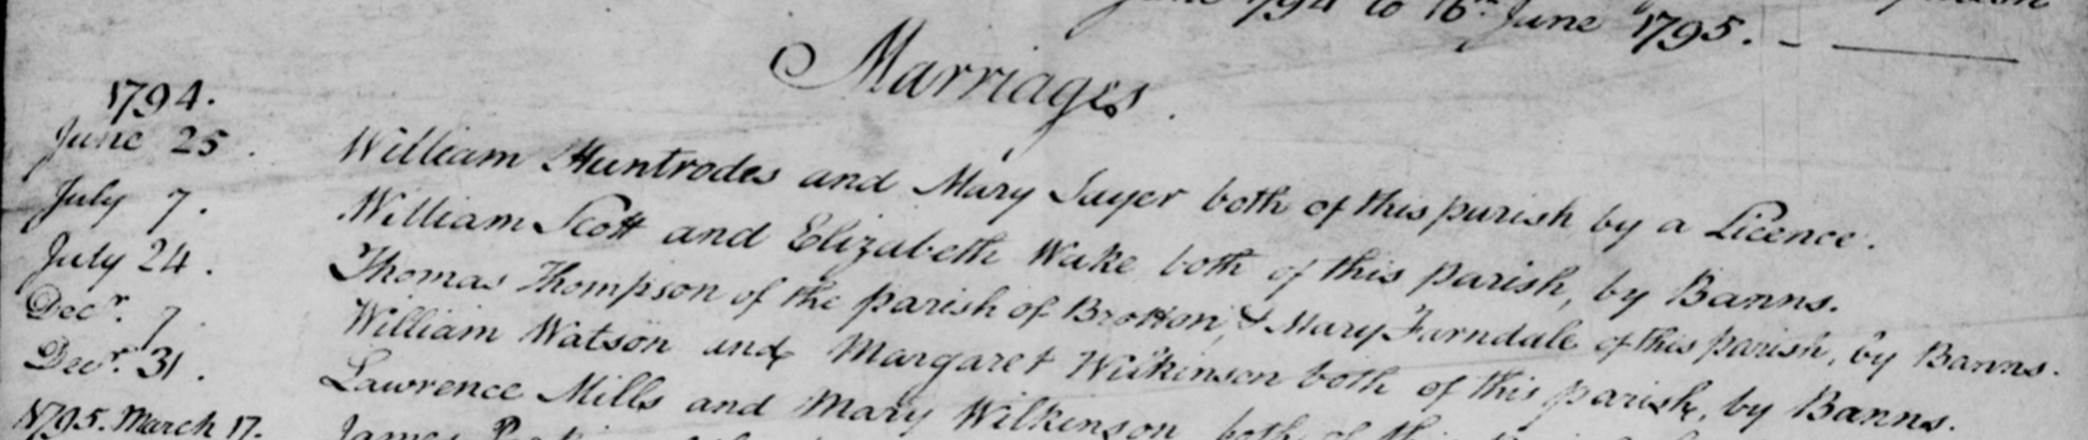 June 1794 to 16th June 1795. -
Marriages.
1794.
June 25. William Huntrodes and Mary Sayer both of this parish by a Licence.
July 7. William Scott and Elizabeth Wake both of this parish, by Banns.
July 24. Thomas Thompson of the parish of Brotton, & Mary Farndale of this parish, by Banns.
Decr. 7. William Watson and Margaret Wilkinson both of this parish, by Banns.
Decr. 31. Lawrence Mills and Mary Wilkinson both of this
1795. March 17. James